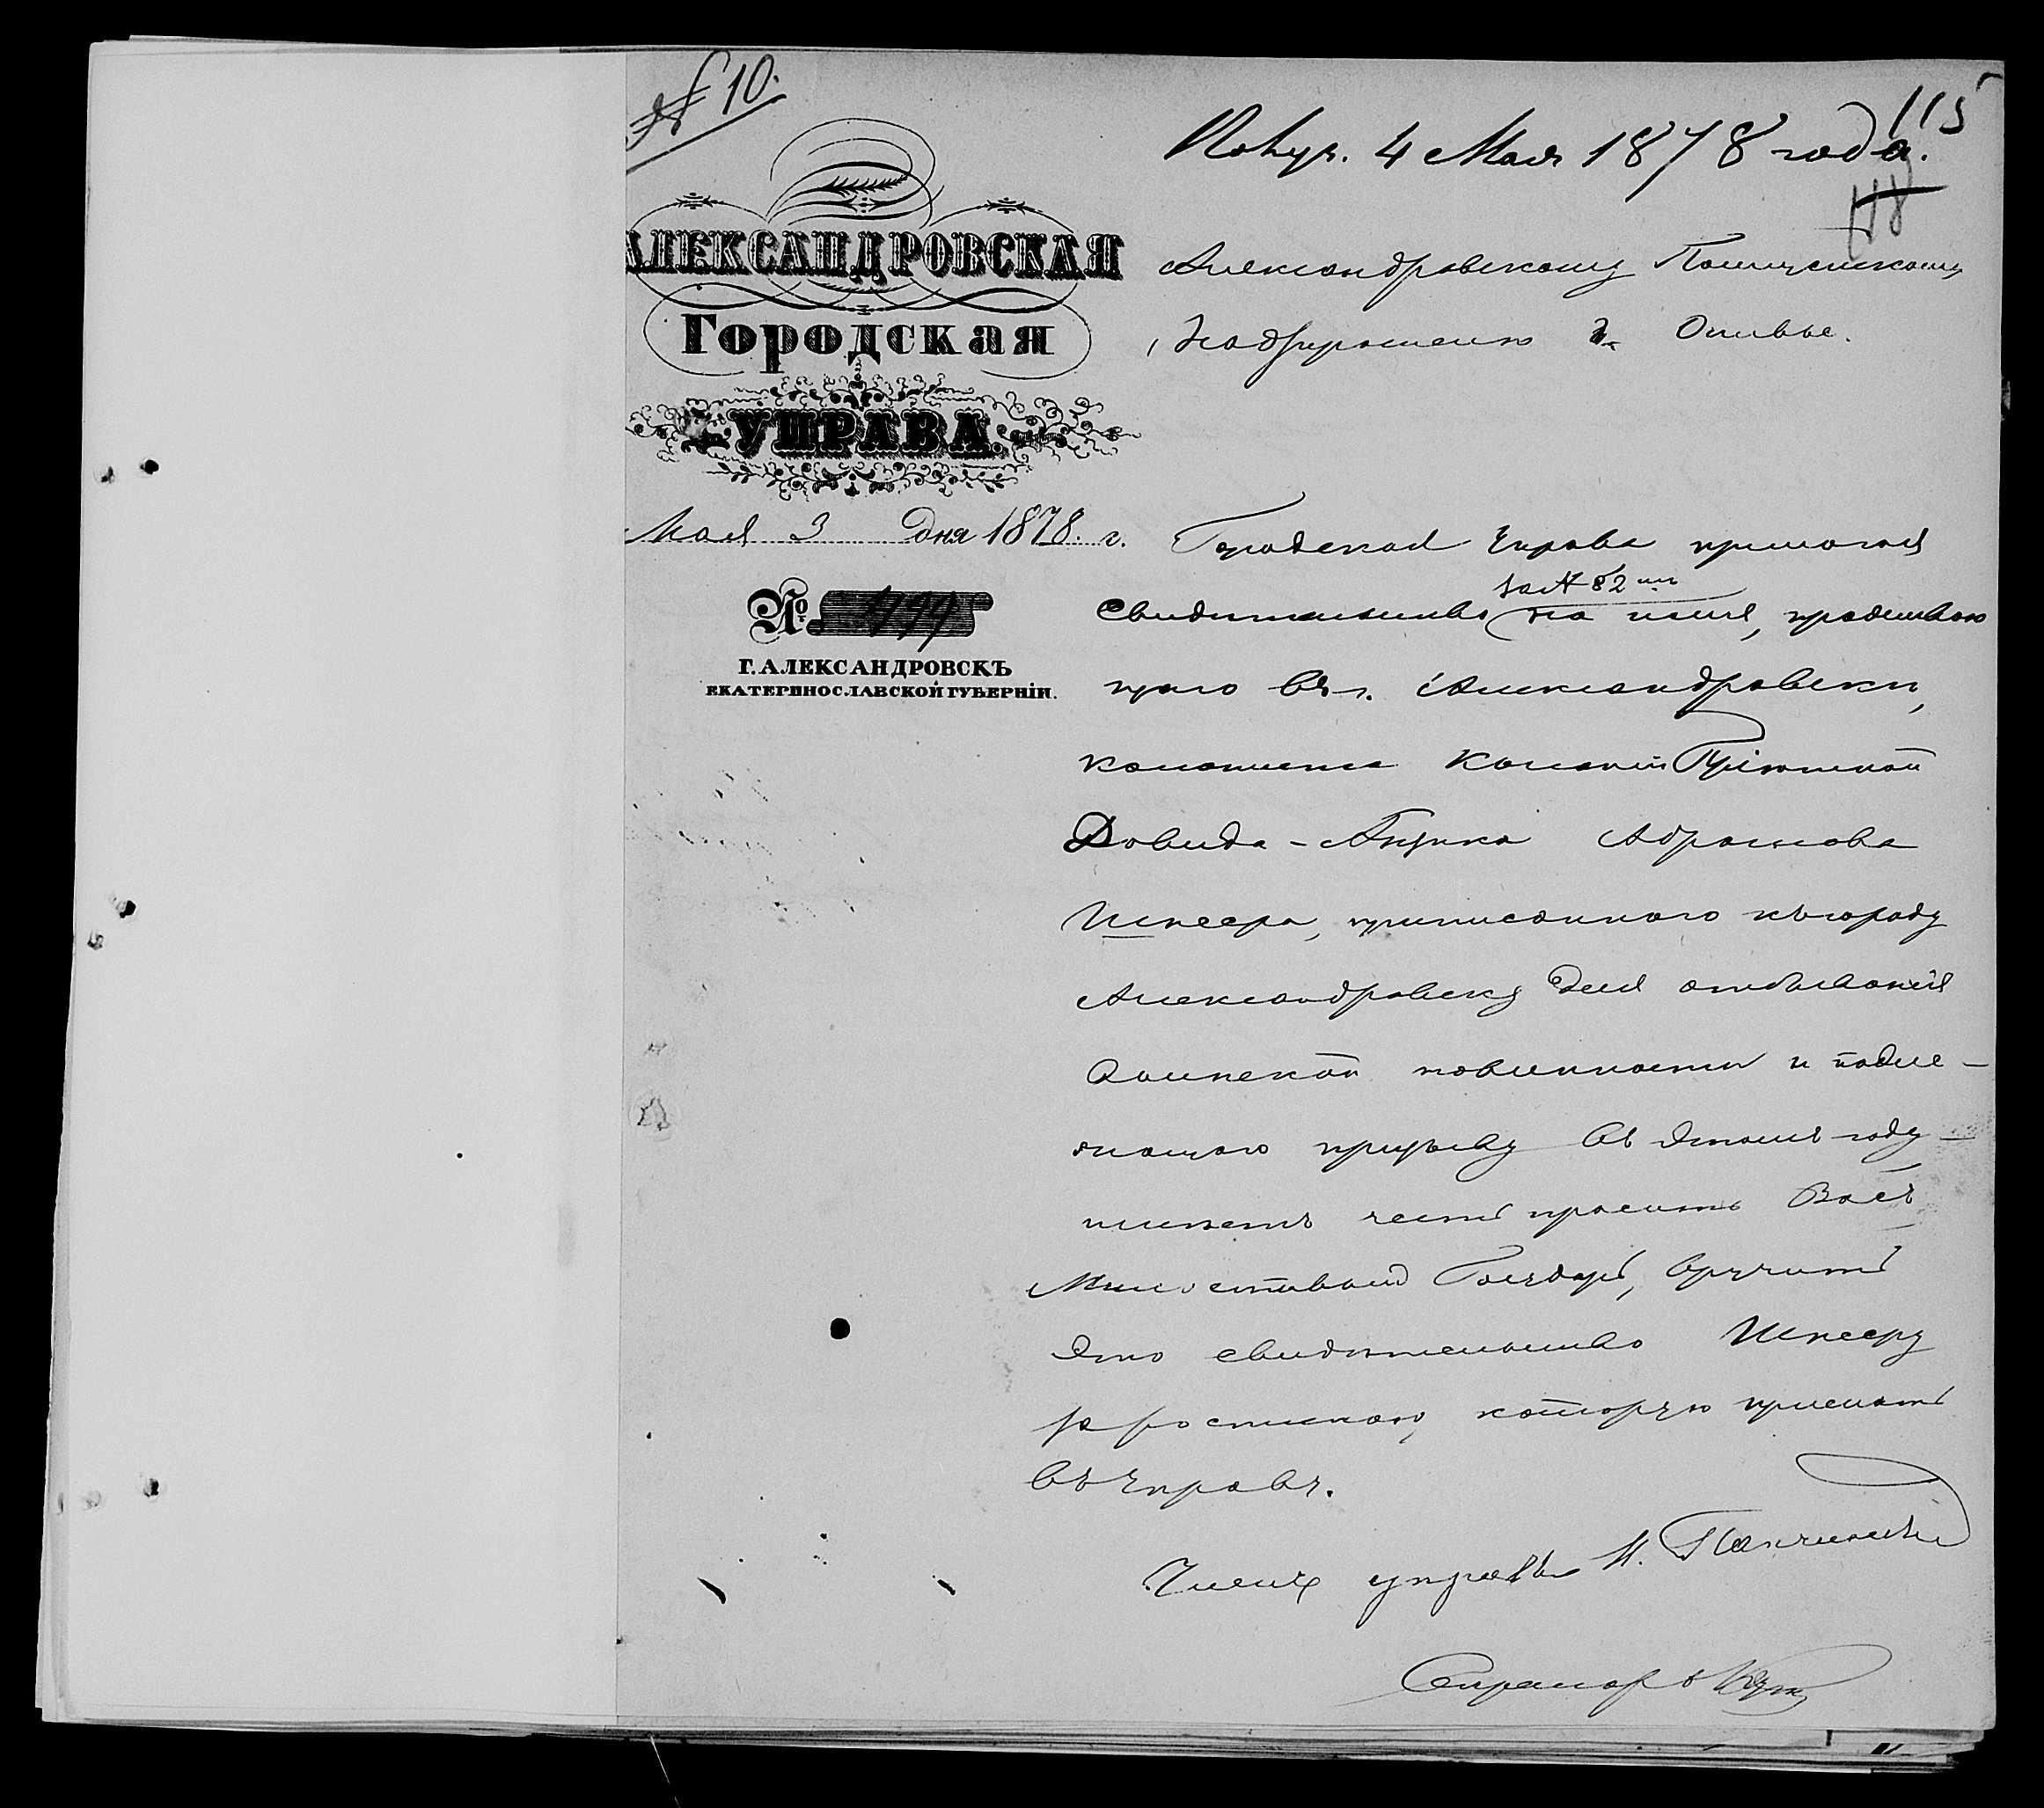 № 10.
115
Получ. 4 Мая 1878 года.
118
АЛЕКСАНДРОВСКАЯ
Городская
УПРАВА.
Мая 3 дня 1878. г.
№
Г. АЛЕКСАНДРОВСКЪ
ЕКАТЕРИНОСЛАВСКОЙ ГУБЕРНІИ.
Александровскому Полицейскому
Надзирателю
Городская Управа прилагая
за № 82 мъ
свидетельство на имя, проживаю
щаго въ г. Александровски,
колониста колоніи
Довида - Ицика Абрамова
Шнеера, приписаннаго къ городу
Александровску для отбыванія
воинской повинности и подле-
жащаго призыву въ этомъ году -
имеетъ честь просить Васъ
Милостивый Государь, вручить
это свидетельство Шнееру
роспискою, которую прислать
въ Управу.
Членъ управы
Секретарь